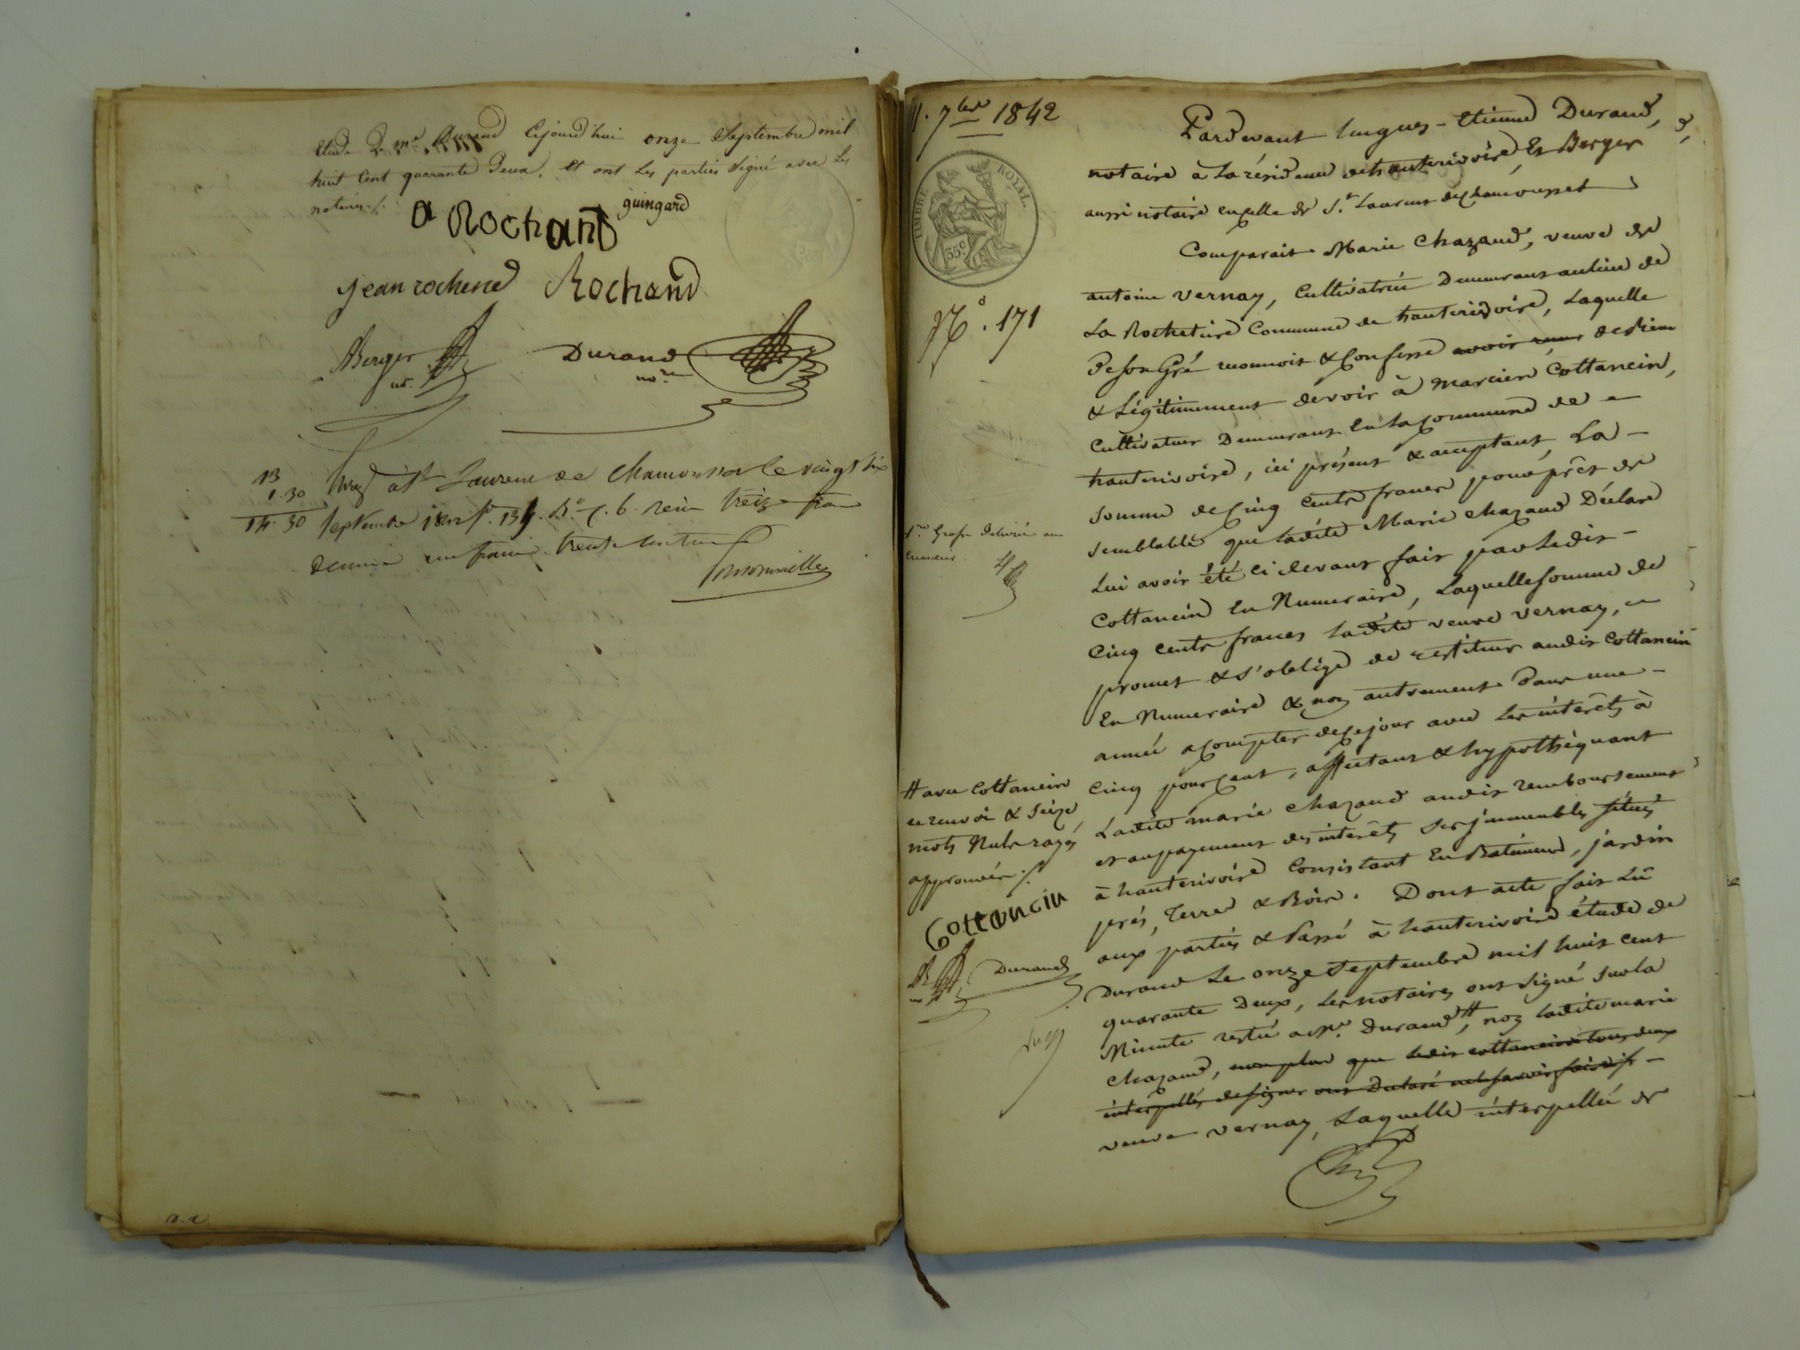 étude de Me Durand Cejourd'hui onze Septembre mil
huit cent quarante deux, et ont les parties signé avec les
notaires ./.
guingard
a Rochand
jean rochand Rochand
Berger
nre
Durand
nore
13
1.30
14.30
Enregé à St Laurent de Chamousset le vingt six
septembre 1842 fo 134. Ro c. 6. reçu treize fra
decime un franc trente centimes
11. 7bre 1842
TIMBRE ROYAL
35 c
No. 171
1re Grosse delivrée au
creancier.
# avec Cottancin
ce renvoi & seize
mots Nuls rayés
approuvés ./.
Cottancin
Durand
Pardevant hugues-Etienne Durand,
notaire à la résidence de hauterivoire, Et Berger
aussi notaire en celle de St. Laurent de chamousset
Comparait Marie Chazaud, veuve de
antoine Vernay, Cultivatrice Demeurant au lieu de
La Rochetire Commune de hauterivoire, Laquelle
De son Gré reconnoit & Confesse avoir de Bien
& Légitimement devoir à marcien Cottancin,
Cultivateur Demeurant En la Commune de
hauterivoire, ici présent & acceptant, La
somme de Cinq Cents francs pour prêt de
semblable que ladite Marie Chazaud Déclare
Lui avoir été ci devant fait par ledit
Cottancin En Numeraire, Laquelle somme de
Cinq cents francs ladite veuve Vernay,
promet & s'oblige de restituer audit Cottancin
En Numeraire & non autrement Dans une
année a Compter de Ce jour avec les intérêts à
Cinq pour Cent, affectant & hypothéquant
Ladite marie Chazaud audit remboursement
et au payement des intérêts ses immeubles situés
à hauterivoire Consistant En Batiment, jardin
prés, Terre & Bois. Dont acte fait Lû
aux parties & Passé à hauterivoire étude de
Durand Le onze septembre mil huit cent
quarante Deux, Les notaires ont signé sur la
Minute restée a Me. Durand #, non ladite marie
Chazaud, non plus que ledit cottancin tous deux
interpellés de signer ont Déclaré ne le savoir faire
veuve Vernay, Laquelle interpellée de